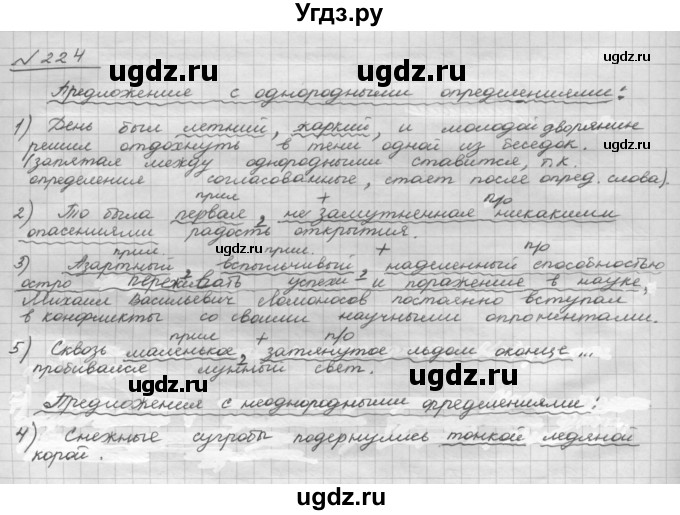 Угдз.ру
№224
ugdz.ru ugdz.ru ugdz.ru
Предложения с однородными определениями:
1) День был летний, жаркий, и молодой дворянин
решил отдохнуть в тени одной из беседок.
(запятая между однородными ставится, т.к.
определения согласованные, стает после опред. слова).
прил + п/о
2) То была первая, не замутненная никакими
опасениями радость открытия.
ugdz.ru ugdz.ru
прил. прил. + п/о
3) Азартный, вспыльчивый, наделенный способностью
остро переживать успехи и поражение в науке,
Михаил Васильевич Ломоносов постоянно вступал
в конфликты со своими научными оппонентами.
прил + п/о
5) Сквозь маленькое, затянутое льдом оконце...
пробивался лунный свет.
ugdz.ru ugdz.ru ugdz.ru
Предложения с неоднородными определениями:
4) Снежные сугробы подернулись тонкой ледяной
корой.
ugdz.ru ugdz.ru
ugdz.ru